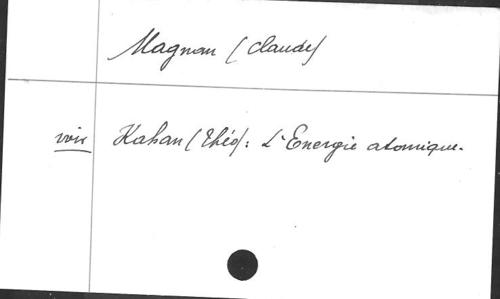 Magnan (Claude)
voir Kahan (Théo) : L'Energie atomique.